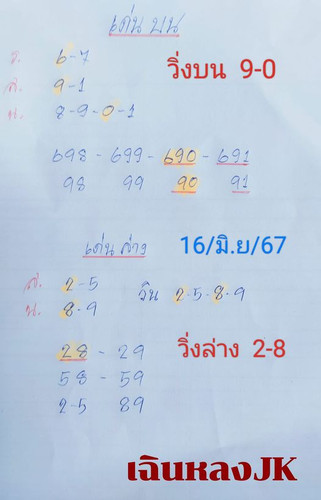 เด่น บน
ร. 6-7
ส. 9-1
น. 8-9-0-1
วิ่งบน 9-0
698 - 699 - 690 - 691
98 99 90 91
เด่น ล่าง
16/มิ.ย/67
ส. 2-5
น. 8-9
วิน 2-5-8-9
28 - 29
58 - 59
2-5 89
วิ่งล่าง 2-8
เฉินหลงJK